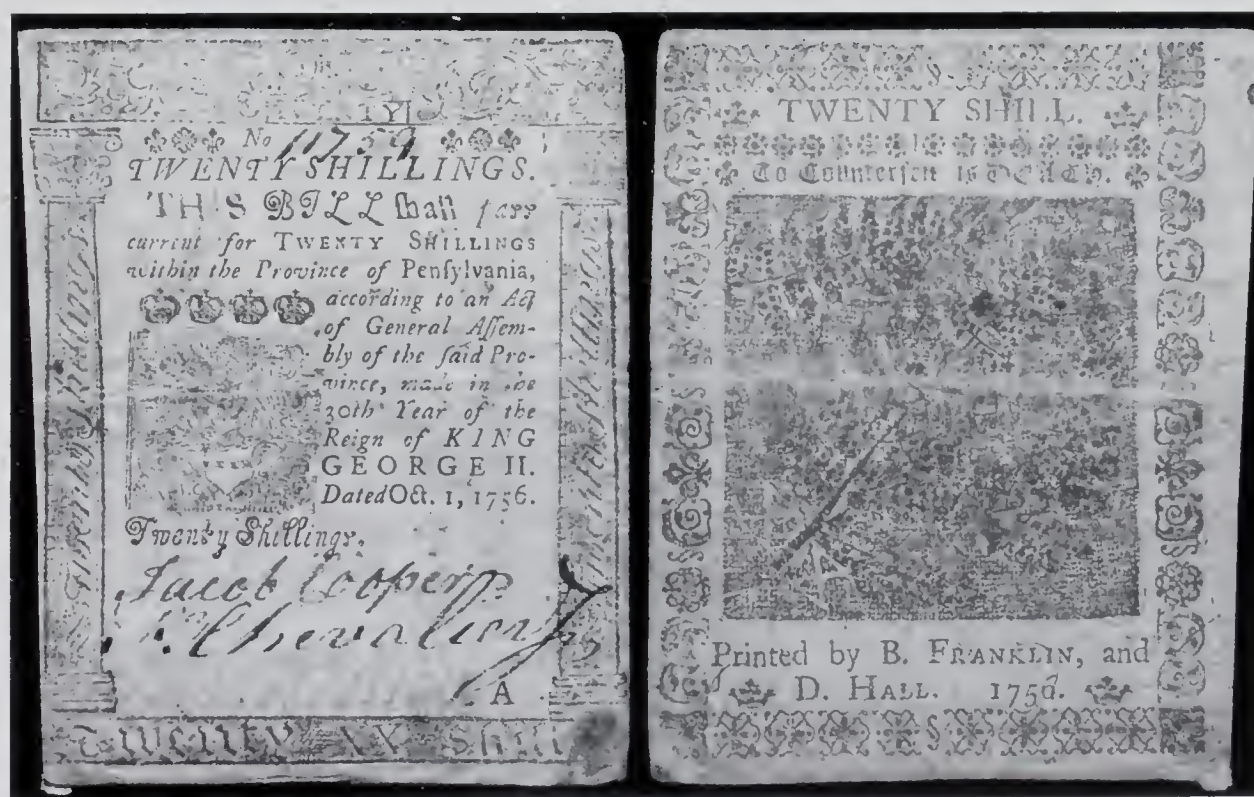 No 11759
TWENTY SHILLINGS.
THIS BILL ſhall paſs
current for TWENTY SHILLINGS
within the Province of Penſylvania,
according to an Act
of General Aſſem-
bly of the ſaid Pro-
vince, made in the
30th Year of the
Reign of KING
GEORGE II.
Dated Oct. 1, 1756.
Twenty Shillings.
Jacob Cooper
Chevalier
A
TWENTY XX Shill
Twenty Shillings
Twenty Shillings
TWENTY SHILL.
To Counterfeit is DEATH.
Printed by B. FRANKLIN, and
D. HALL. 1756.